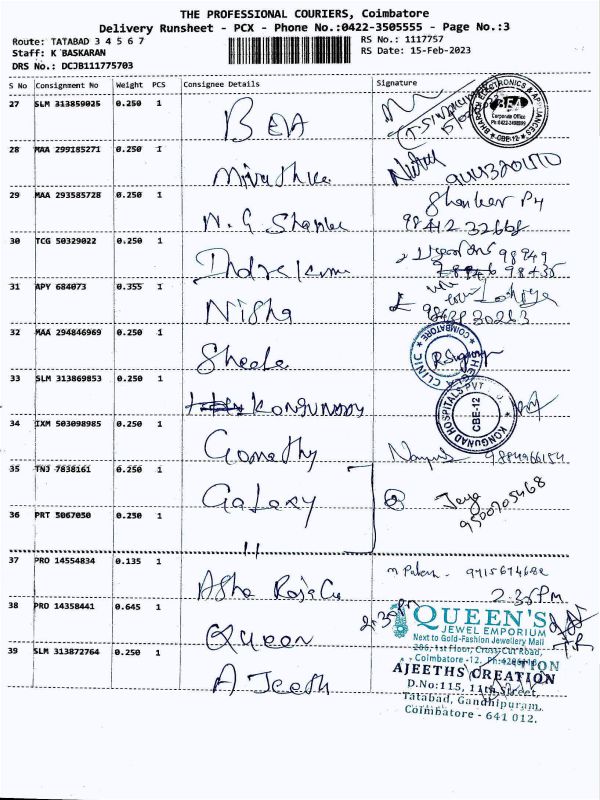 THE PROFESSIONAL COURIERS, Coimbatore
Delivery Runsheet - PCX - Phone No.:0422-3505555 - Page No.:3
Route: TATABAD 3 4 5 6 7
RS No.: 1117757
Staff: K BASKARAN
RS Date: 15-Feb-2023
DRS No.: DCJB111775703
S No Consignment No Weight PCS Consignee Details Signature
27 SLM 313859025 0.250 1 BEA
BHARATH ELECTRONICS & APPLIANCES
BEA
Corporate Office
CBE-12
28 MAA 299185271 0.250 1
29 MAA 293585728 0.250 1 N.G Shanker
Shanker
98412 32668
30 TCG 50329022 0.250 1
31 APY 684073 0.355 1 Nisha
32 MAA 294846969 0.250 1 Sheela
SHEELA CLINIC
COIMBATORE
33 SLM 313869853 0.250 1 KONGUNADU
KONGUNAD HOSPITALS PVT
CBE-12
34 IXM 503098985 0.250 1 Gomathy
9884966154
35 TNJ 7838161 0.250 1 Galaxy
Jaya
9500705468
36 PRT 5067050 0.250 1 "
37 PRO 14554834 0.135 1 Asha
9715674682
2.35 Pm
38 PRO 14358441 0.645 1 Queen
2.30 pm
QUEEN'S
JEWEL EMPORIUM
Next to Gold-Fashion Jewellery Mall
206, 1st Floor, Cross Cut Road,
Coimbatore -12.
39 SLM 313872764 0.250 1 AJeeth
AJEETHS CREATION
D.No:115, 11th Street,
Tatabad, Gandhipuram,
Coimbatore - 641 012.